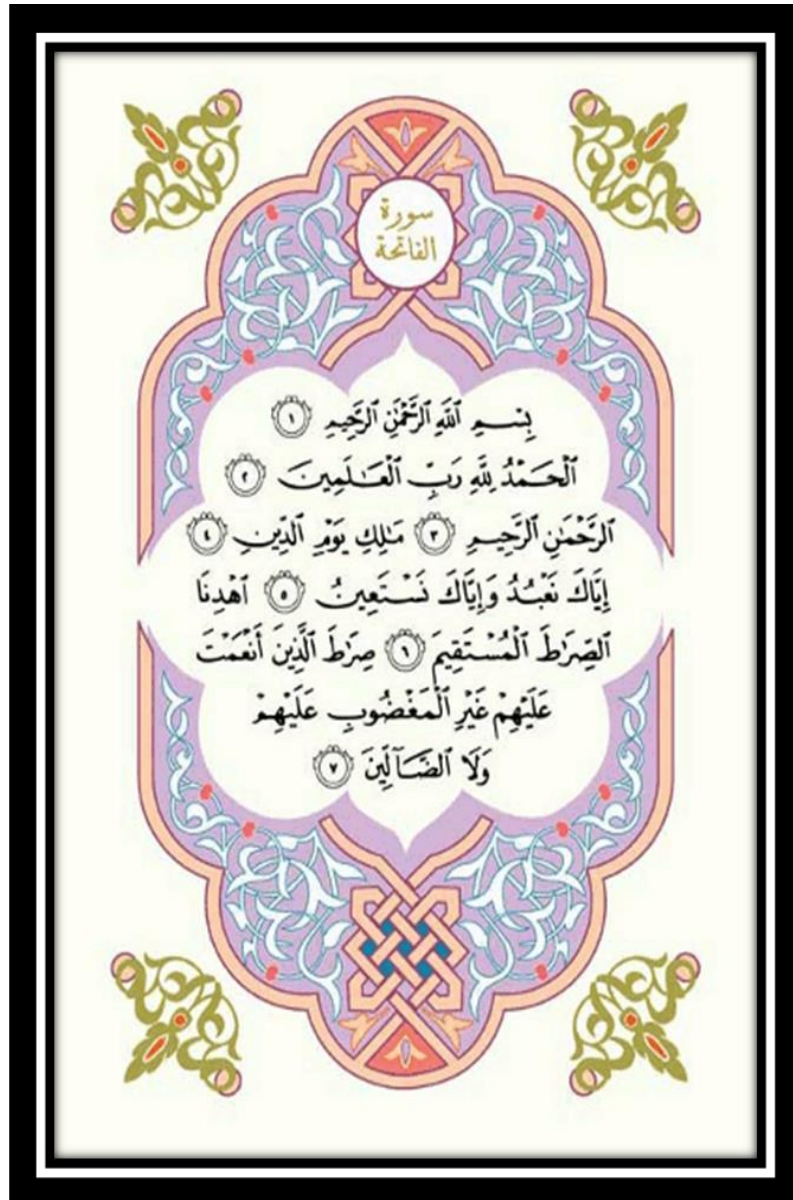 سورة
الفاتحة
بِسْمِ ٱللَّهِ ٱلرَّحْمَٰنِ ٱلرَّحِيمِ ١
ٱلْحَمْدُ لِلَّهِ رَبِّ ٱلْعَٰلَمِينَ ٢
ٱلرَّحْمَٰنِ ٱلرَّحِيمِ ٣ مَٰلِكِ يَوْمِ ٱلدِّينِ ٤
إِيَّاكَ نَعْبُدُ وَإِيَّاكَ نَسْتَعِينُ ٥ ٱهْدِنَا
ٱلصِّرَٰطَ ٱلْمُسْتَقِيمَ ٦ صِرَٰطَ ٱلَّذِينَ أَنْعَمْتَ
عَلَيْهِمْ غَيْرِ ٱلْمَغْضُوبِ عَلَيْهِمْ
وَلَا ٱلضَّآلِّينَ ٧